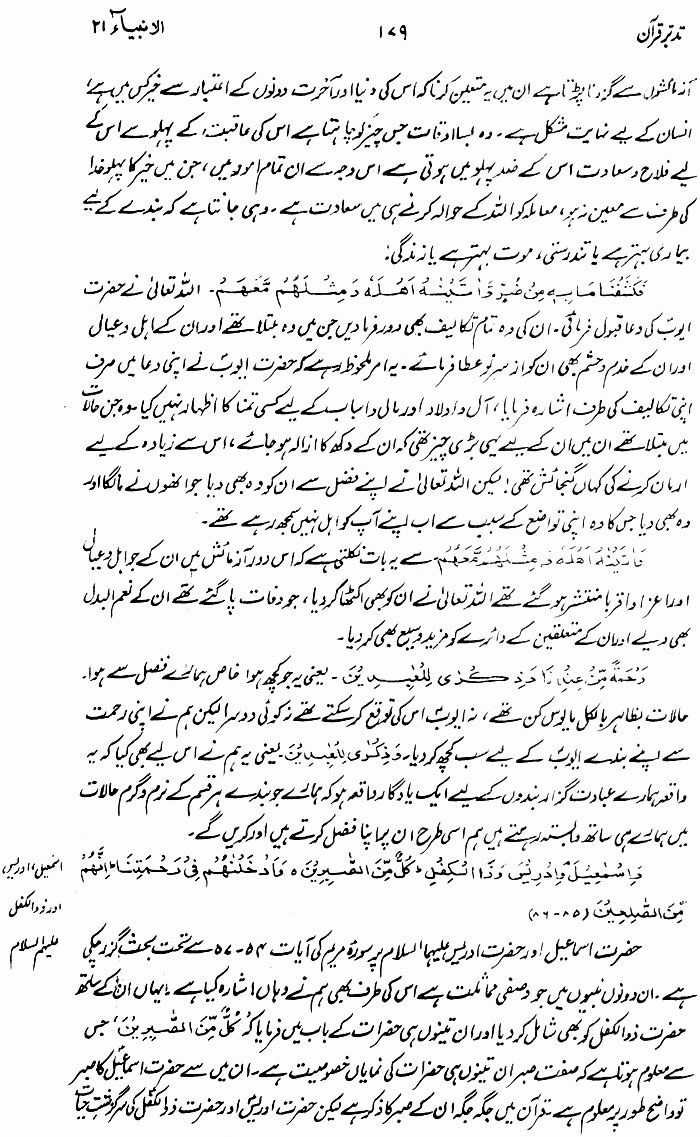 تدبر قرآن ۱۷۹ الانبیاء ۲۱
آزمائشوں سے گزرنا پڑتا ہے ان میں یہ متعین کرنا کہ اس کی دنیا اور آخرت دونوں کے اعتبار سے خیر کس میں ہے،
انسان کے لیے نہایت مشکل ہے۔ وہ بسا اوقات جس چیز کو چاہتا ہے اس کی عاقبت، کے پہلو سے اس کے
لیے فلاح و سعادت اس کے ضد پہلو میں ہوتی ہے اس وجہ سے ان تمام امور میں، جن میں خیر کا پہلو خدا
کی طرف سے معین نہ ہو، معاملہ کو اللہ کے حوالہ کرنے ہی میں سعادت ہے۔ وہی جانتا ہے کہ بندے کے لیے
بیماری بہتر ہے یا تندرستی، موت بہتر ہے یا زندگی!
فَكَشَفْنَا مَا بِهٖ مِنْ ضُرٍّ وَّاٰتَيْنٰهُ اَهْلَهٗ وَمِثْلَهُمْ مَّعَهُمْ۔ اللہ تعالیٰ نے حضرت
ایوبؑ کی دعا قبول فرمائی۔ ان کی وہ تمام تکالیف بھی دور فرما دیں جن میں وہ مبتلا تھے اور ان کے اہل و عیال
اور ان کے خدم و حشم بھی ان کو از سر نو عطا فرمائے۔ یہ امر ملحوظ رہے کہ حضرت ایوبؑ نے اپنی دعا میں صرف
اپنی تکالیف کی طرف اشارہ فرمایا، آل و اولاد اور مال و اسباب کے لیے کسی تمنا کا اظہار نہیں کیا۔ وہ جن حالات
میں مبتلا تھے ان میں ان کے لیے یہی بڑی چیز تھی کہ ان کے دکھ کا ازالہ ہو جائے، اس سے زیادہ کے لیے
ارمان کرنے کی کہاں گنجائش تھی! لیکن اللہ تعالیٰ نے اپنے فضل سے ان کو وہ بھی دیا جو انھوں نے مانگا اور
وہ بھی دیا جس کا وہ اپنی تواضع کے سبب سے اب اپنے آپ کو اہل نہیں سمجھ رہے تھے۔
وَاٰتَيْنٰهُ اَهْلَهٗ وَمِثْلَهُمْ مَّعَهُمْ سے یہ بات نکلتی ہے کہ اس دور آزمائش میں ان کے جو اہل و عیال
اور اعزا و اقربا منتشر ہو گئے تھے اللہ تعالیٰ نے ان کو بھی اکٹھا کر دیا، جو وفات پا گئے تھے ان کے نعم البدل
بھی دیے اور ان کے متعلقین کے دائرے کو مزید وسیع بھی کر دیا۔
رَحْمَةً مِّنْ عِنْدِنَا وَذِكْرٰى لِلْعٰبِدِيْنَ۔ یعنی یہ جو کچھ ہوا خاص ہمارے فضل سے ہوا۔
حالات بظاہر بالکل مایوس کن تھے، نہ ایوبؑ اس کی توقع کر سکتے تھے نہ کوئی دوسرا لیکن ہم نے اپنی رحمت
سے اپنے بندے ایوبؑ کے لیے سب کچھ کر دیا۔ وَذِكْرٰى لِلْعٰبِدِيْنَ۔ یعنی یہ ہم نے اس لیے بھی کیا کہ یہ
واقعہ ہمارے عبادت گزار بندوں کے لیے ایک یادگار واقعہ ہو کہ ہمارے جو بندے ہر قسم کے نرم و گرم حالات
میں ہمارے ہی ساتھ وابستہ رہتے ہیں ہم اسی طرح ان پر اپنا فضل کرتے ہیں اور کریں گے۔
وَاِسْمٰعِيْلَ وَاِدْرِيْسَ وَذَا الْكِفْلِ ؕ كُلٌّ مِّنَ الصّٰبِرِيْنَ ہ وَاَدْخَلْنٰهُمْ فِيْ رَحْمَتِنَا ؕ اِنَّهُمْ
مِّنَ الصّٰلِحِيْنَ (۸۵-۸۶)
اسمٰعیل، ادریس،
اور ذوالکفل
علیہم السلام
حضرت اسماعیل اور حضرت ادریس علیہما السلام پر سورۂ مریم کی آیات ۵۴-۵۷ کے تحت بحث گزر چکی
ہے۔ ان دونوں نبیوں میں جو وصفی مماثلت ہے اس کی طرف بھی ہم نے وہاں اشارہ کیا ہے۔ یہاں ان کے ساتھ
حضرت ذوالکفل کو بھی شامل کر دیا اور ان تینوں ہی حضرات کے باب میں فرمایا کہ 'كُلٌّ مِّنَ الصّٰبِرِيْنَ' جس
سے معلوم ہوتا ہے کہ صفت صبر ان تینوں ہی حضرات کی نمایاں خصوصیت ہے۔ ان میں سے حضرت اسماعیلؑ کا صبر
تو واضح طور پر معلوم ہے۔ قرآن میں جگہ جگہ ان کے صبر کا ذکر ہے لیکن حضرت ادریسؑ اور حضرت ذوالکفلؑ کی سرگزشت حیات